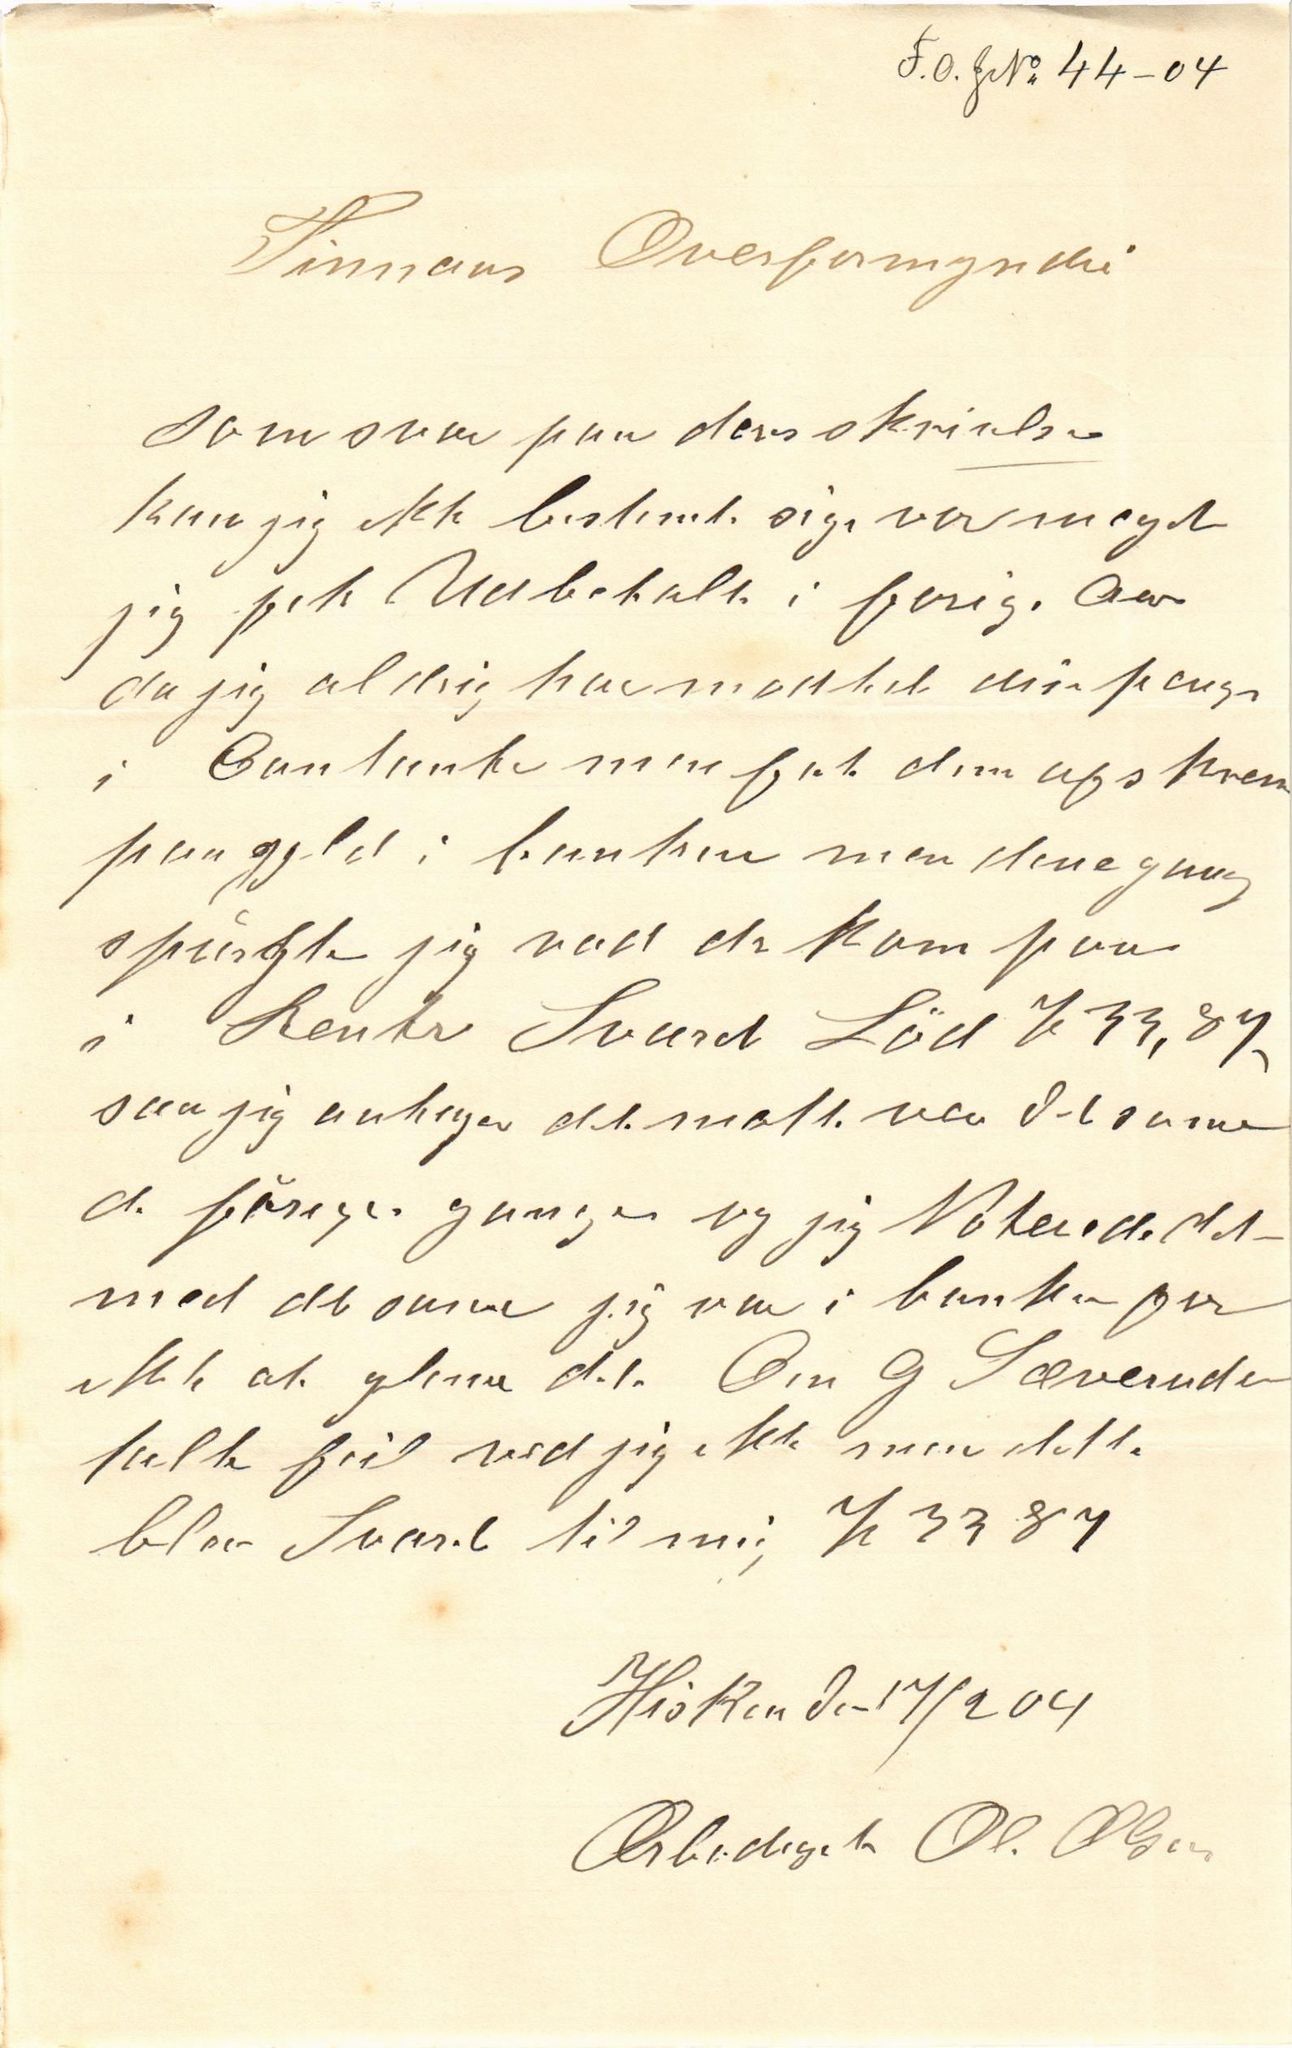 F.O. JNo 44-04
Finnaas Overformynderi
som svar paa deres skrivelse
kan jig ikke bestemt sige vor meget
jig fik Udbetalt i forige Aar
da jig aldrig har modtet dise penge
i Contante men fik dem afskreven
paa gjeld i banken men dene gang
spürgte jig vad de kom paa
i Renter Svaret Löd Kr 33,87
saa jig antager det matte vær det same
de förege ganger og jig Noterede det
med det same jig var i banken for
ikke at glemme det. Om G Sæverud
talte feil ved jig ikke men dette
blev Svaret til mig Kr 33 87
Hisken den 17/2 04
Ærbødigst Ol. Olsen